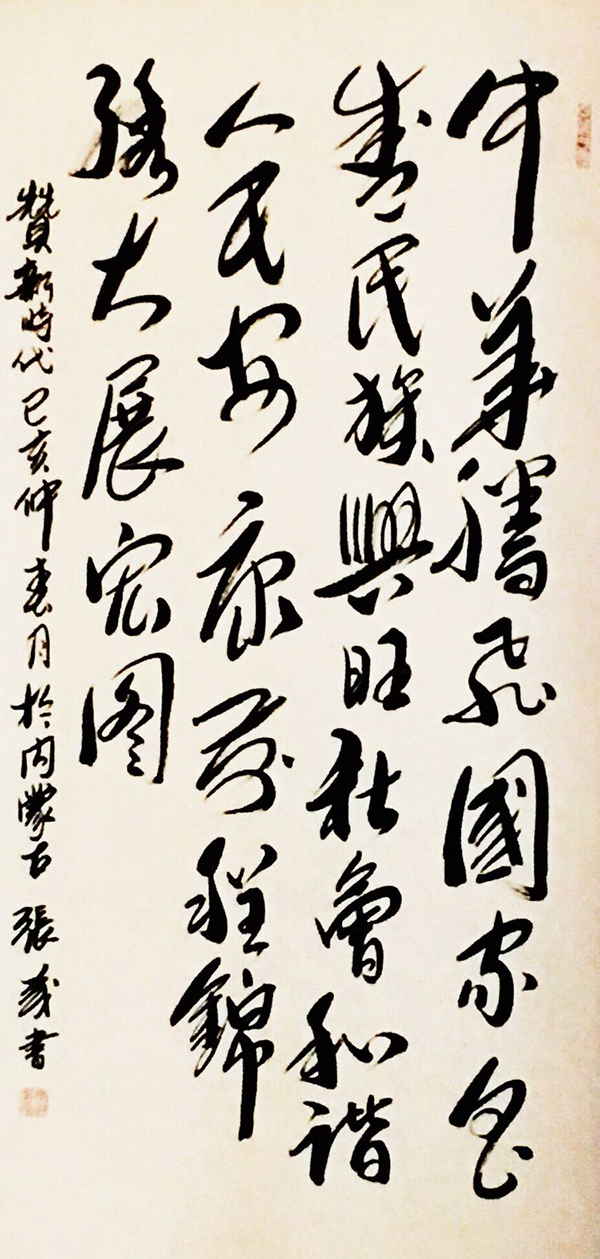 中華騰飛國家昌
盛民族興旺社會和諧
人民安康前程錦
綉大展宏图
贊新時代己亥仲春月於内蒙古 張書